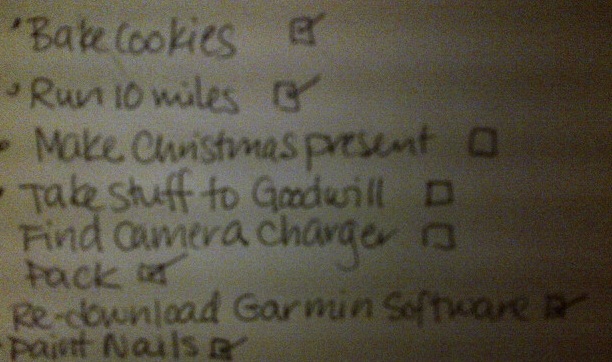 • Bake Cookies ☑
• Run 10 miles ☑
• Make Christmas present ☐
• Take stuff to Goodwill ☐
Find Camera charger ☐
Pack ☑
Re-download Garmin Software ☑
• Paint Nails ☑